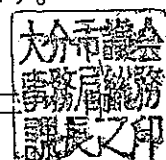 す。
大分市議会
事務局総務
課長之印